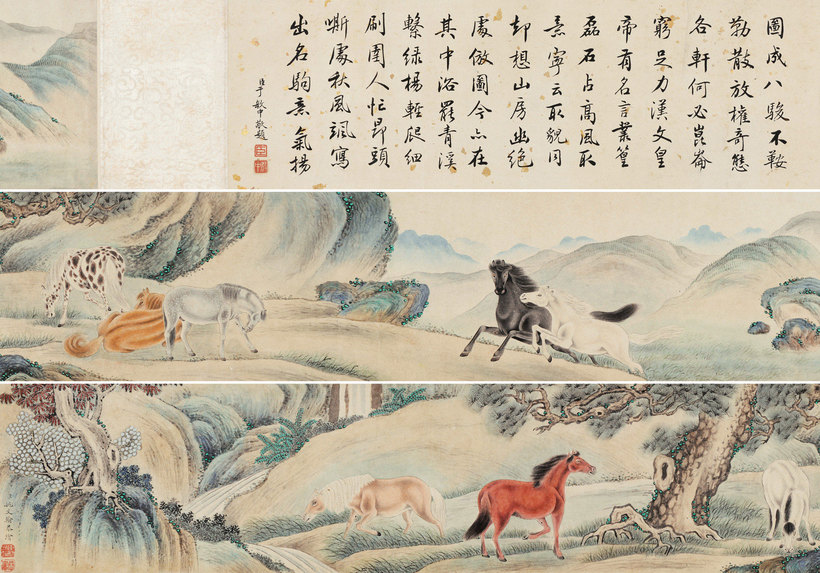 圖成八駿不鞍
勒散放權奇態
各軒何必崑崙
窮足力漢文皇
帝有名言叢篁
磊石占高風取
意寧云取貌同
却想山房幽絕
處倣圖今亦在
其中浴罷青溪
繫緑楊蹔爬細
刷圉人忙昂頭
嘶處秋風颯寫
出名駒意氣揚
臣于敏中敬題
臣姚文瀚恭繪